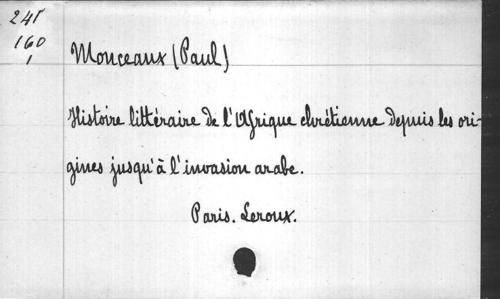 241
160
1
Monceaux (Paul)
Histoire littéraire de l'Afrique chrétienne depuis les ori-
gines jusqu'à l'invasion arabe.
Paris. Leroux.